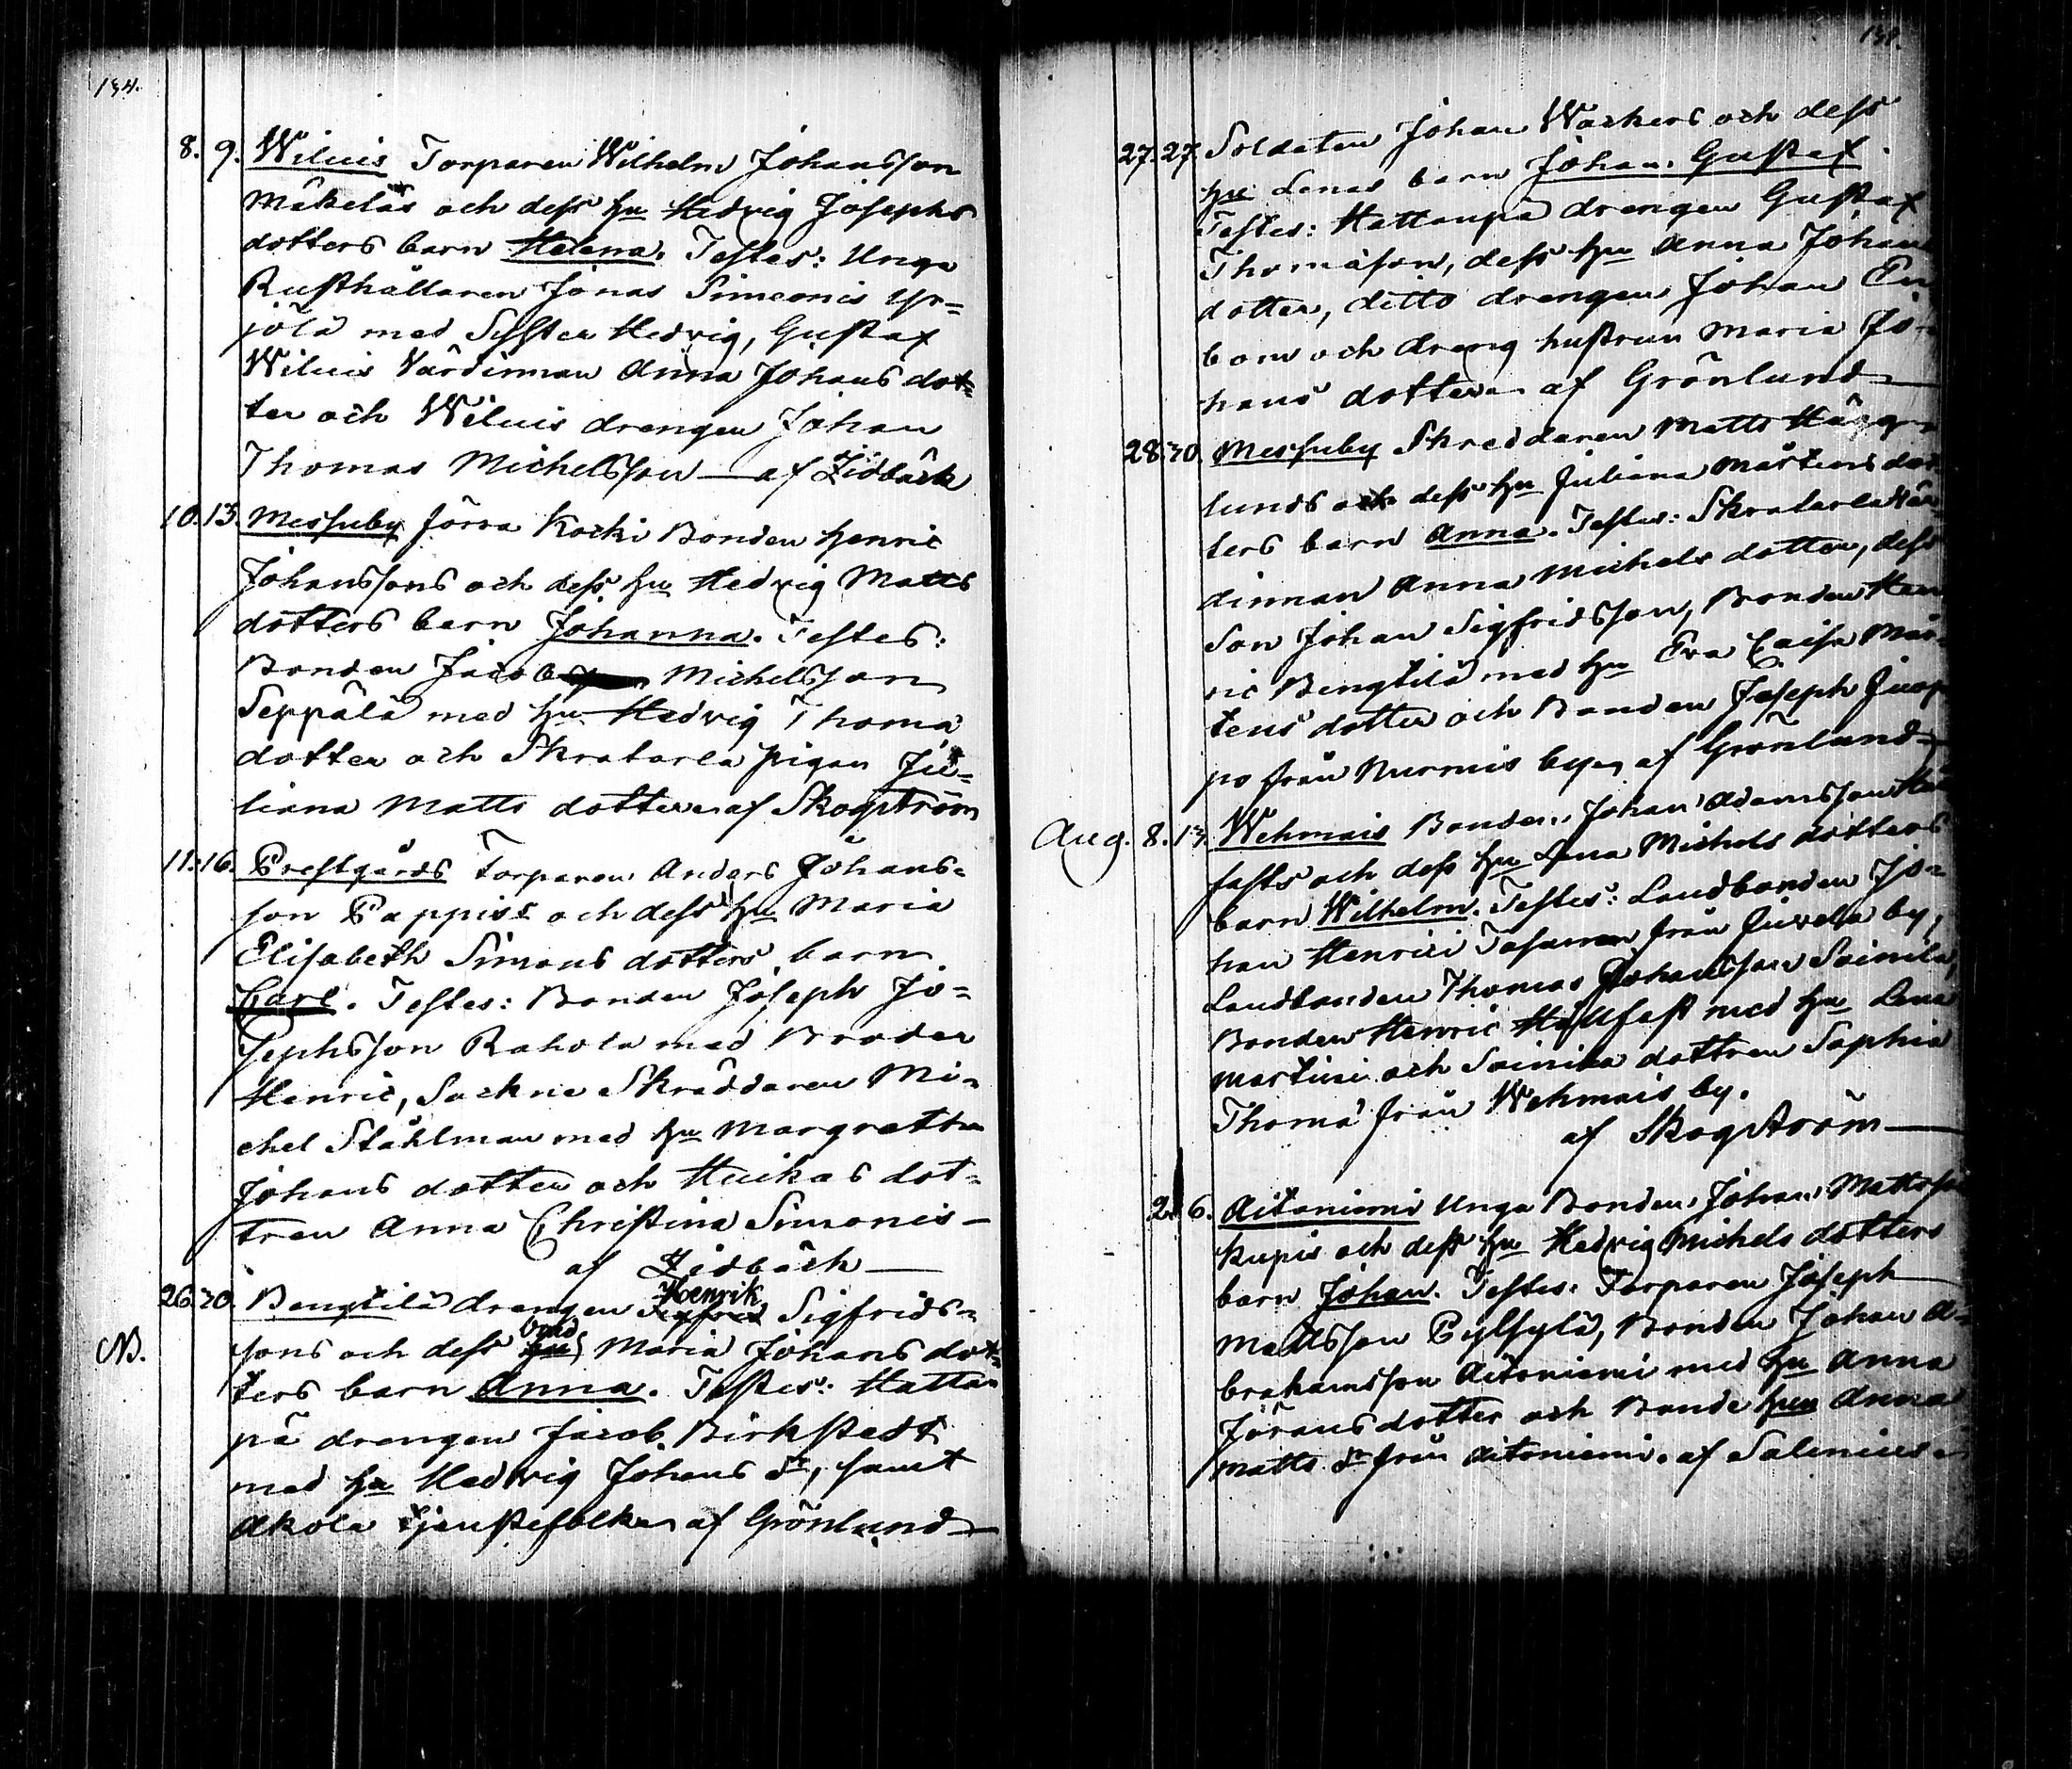 134.
8. 9. Wiluis Torparen Wilhelm Johansson
Mäkeläs och dess hu Hedvig Josephs
dotters barn Helena. Testes: Unge
Rusthållaren Jonas Simeonis Yr=
jölä med Syster Hedvig, Gustaf
Wiluis Värdinnan Anna Johans dot=
ter och Wiluis drengen Johan
Thomas Michelsson — af Zidbäck
10. 13. Messuby Jörra Kocki Bonden Henric
Johanssons och dess hu Hedvig Matts
dotters barn Johanna. Testes:
Bonden Jacob Michelsson
Seppälä med hu Hedvig Thomæ
dotter och Skratarla pigan Ju=
liana Matts dotter af Skogström
11. 16. Prestgårds Torparen Anders Johans=
son Pappiss och dess hu Maria
Elisabeth Simons dotters barn
Carl. Testes: Bonden Joseph Jo=
sephsson Rahola med Broder
Henric, Sockne Skräddaren Mi=
chel Stålman med hu Margretha
Johans dotter och Huikas dot=
tren Anna Christina Simonis —
af Zidbäck —
26. 30. Bengtilä drengen Henrik Sigfrids=
NB. sons och dess Maria Johans dot=
ters barn Anna. Testes: Hattan
pä drengen Jacob Birkstedt
med hu Hedvig Johans dr, samt
Akola tjenstefolken af Grönlund —
27. 27. Soldaten Johan Wackers och dess
hu Lenas barn Johan Gustaf.
Testes: Hattanpä drengen Gustaf
Thomasson, dess hu Anna Johans
dotter, ditto drengen Johan En
bom och dreng hustrun Maria Jo=
hans dotter af Grönlund —
28. 30. Messuby Skreddaren Matts Häggr
lunds och dess hu Juliana Mårtens dot
ters barn Anna. Testes: Skratarla Vär
dinnan Anna Michels dotter, dess
Son Johan Sigfridsson, Bonden Hen
ric Bengtilä med hu Eva Caisa Mår=
tens dotter och Bonden Joseph Juop
po från Nurmis by af Grönlund —
Aug. 8. 13. Wehmais Bonden Johan Adamsson Häll
fasts och dess hu Lena Michels dotters
barn Wilhelm. Testes: Landbonden Jo=
han Henrici från Juvela by,
Landbonden Thomas Johansson Soinila,
Bonden Henric Hällfast med hu Lena
Martini och Soinila dottren Sophia
Thomæ från Wehmais by.
af Skogström —
2. 6. Aitoniemi Unga Bonden Johan Mattsson
Kupis och dess hu Hedvig Michels dotters
barn Johan. Testes: Torparen Joseph
Mattsson Pylsylä, Bonden Johan A=
brahamsson Aitoniemi med hu Anna
Jörans dotter och Bonde hun Anna
Matts dr från Aitoniemi. af Salenius —